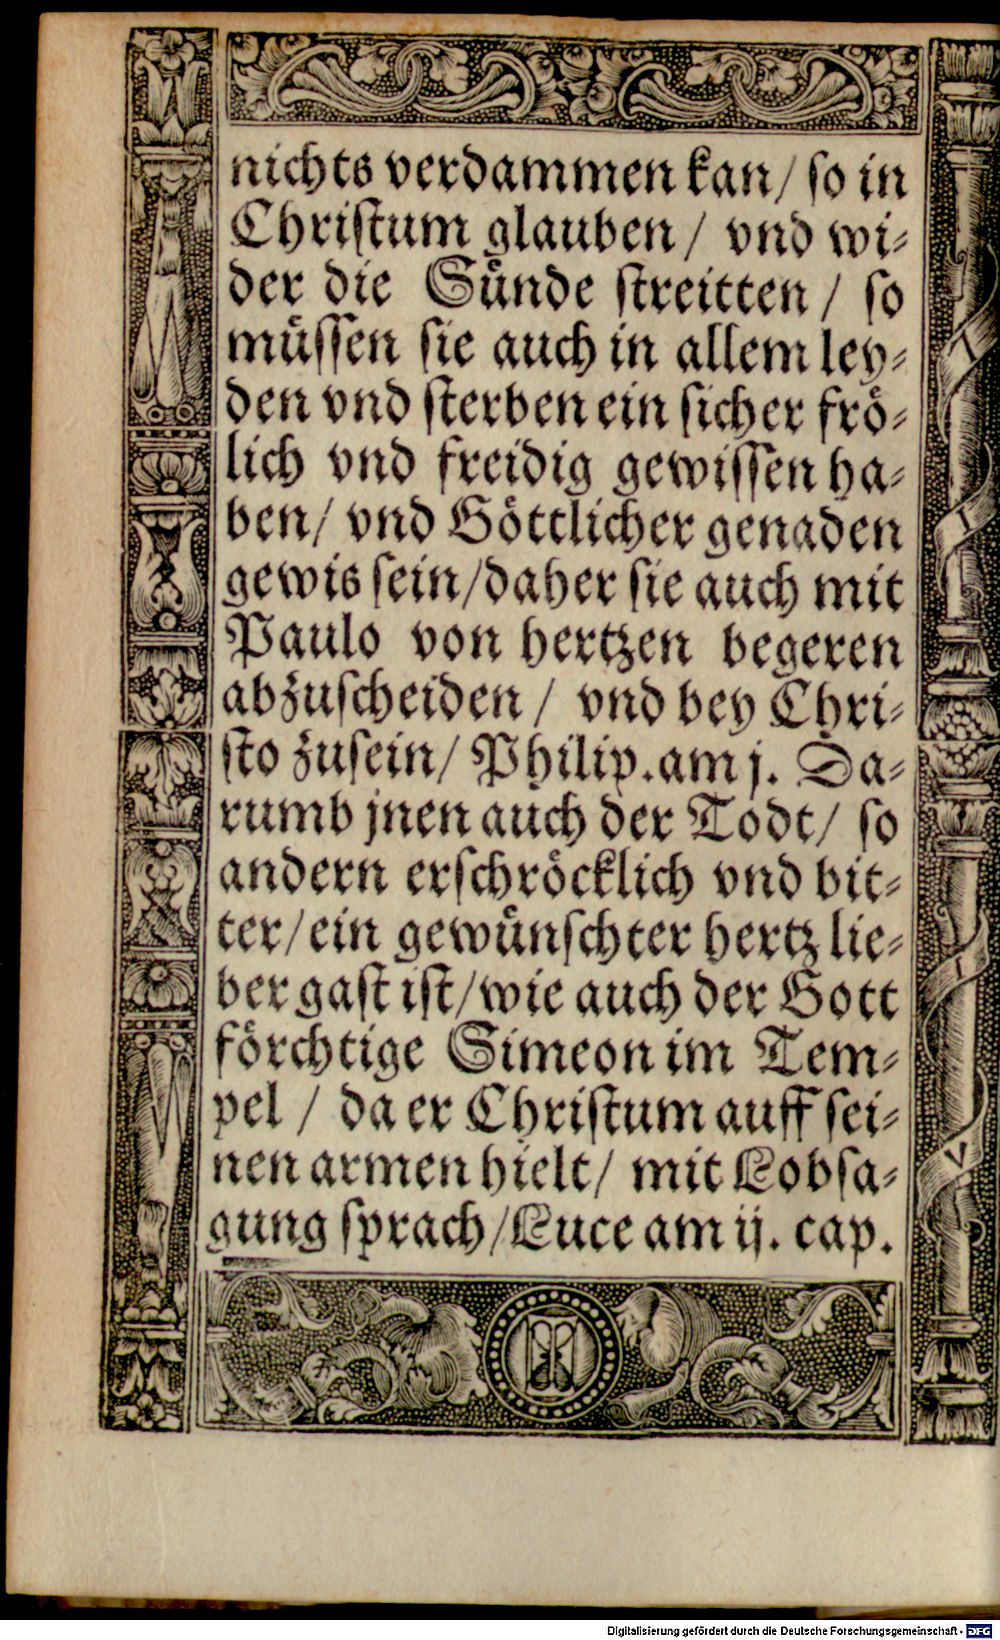 nichts verdammen kan/ so in
Christum glauben/ vnd wi⸗
der die Suͤnde streitten/ so
muͤssen sie auch in allem ley⸗
den vnd sterben ein sicher froͤ⸗
lich vnd freidig gewissen ha⸗
ben/ vnd Goͤttlicher genaden
gewis sein/daher sie auch mit
Paulo von hertzen begeren
abzuscheiden/ vnd bey Chri⸗
sto zusein/ Philip.am j. Da⸗
rumb jnen auch der Todt/ so
andern erschroͤcklich vnd bit⸗
ter/ein gewuͤnschter hertz lie⸗
ber gast ist/wie auch der Gott
foͤrchtige Simeon im Tem⸗
pel/ da er Christum auff sei⸗
nen armen hielt/ mit Lobsa⸗
gung sprach/Luce am ij. cap.
Digitalisierung gefördert durch die Deutsche Forschungsgemeinschaft - DFG